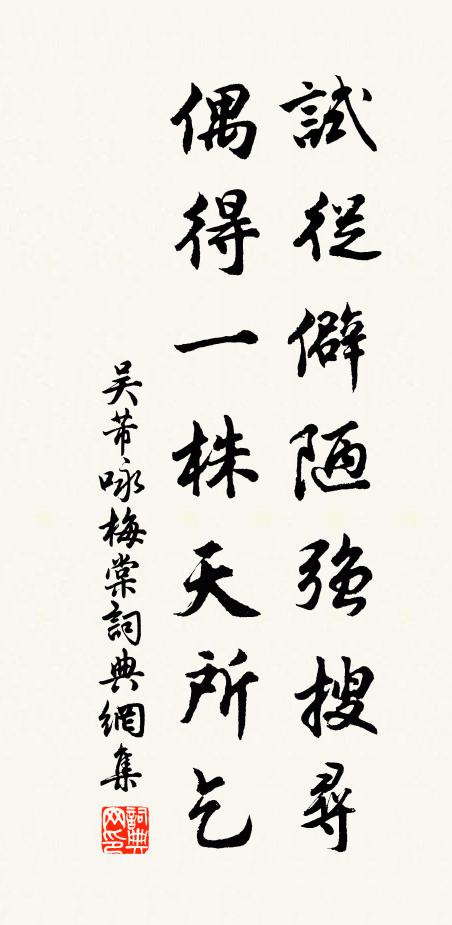 試從僻陋強搜尋
偶得一株天所乞
吴芾咏梅棠詞典網集
詞典网印